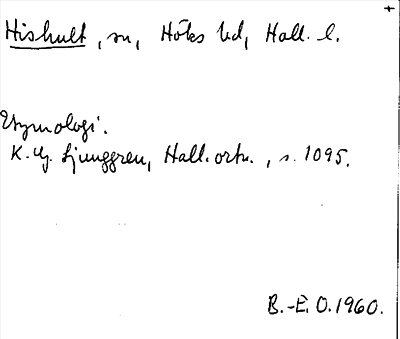 +
Hishult, sn, Höks hd, Hall. l.
Etymologi.
K. G. Ljunggren, Hall. ortn., s. 1095.
B.-E. O. 1960.